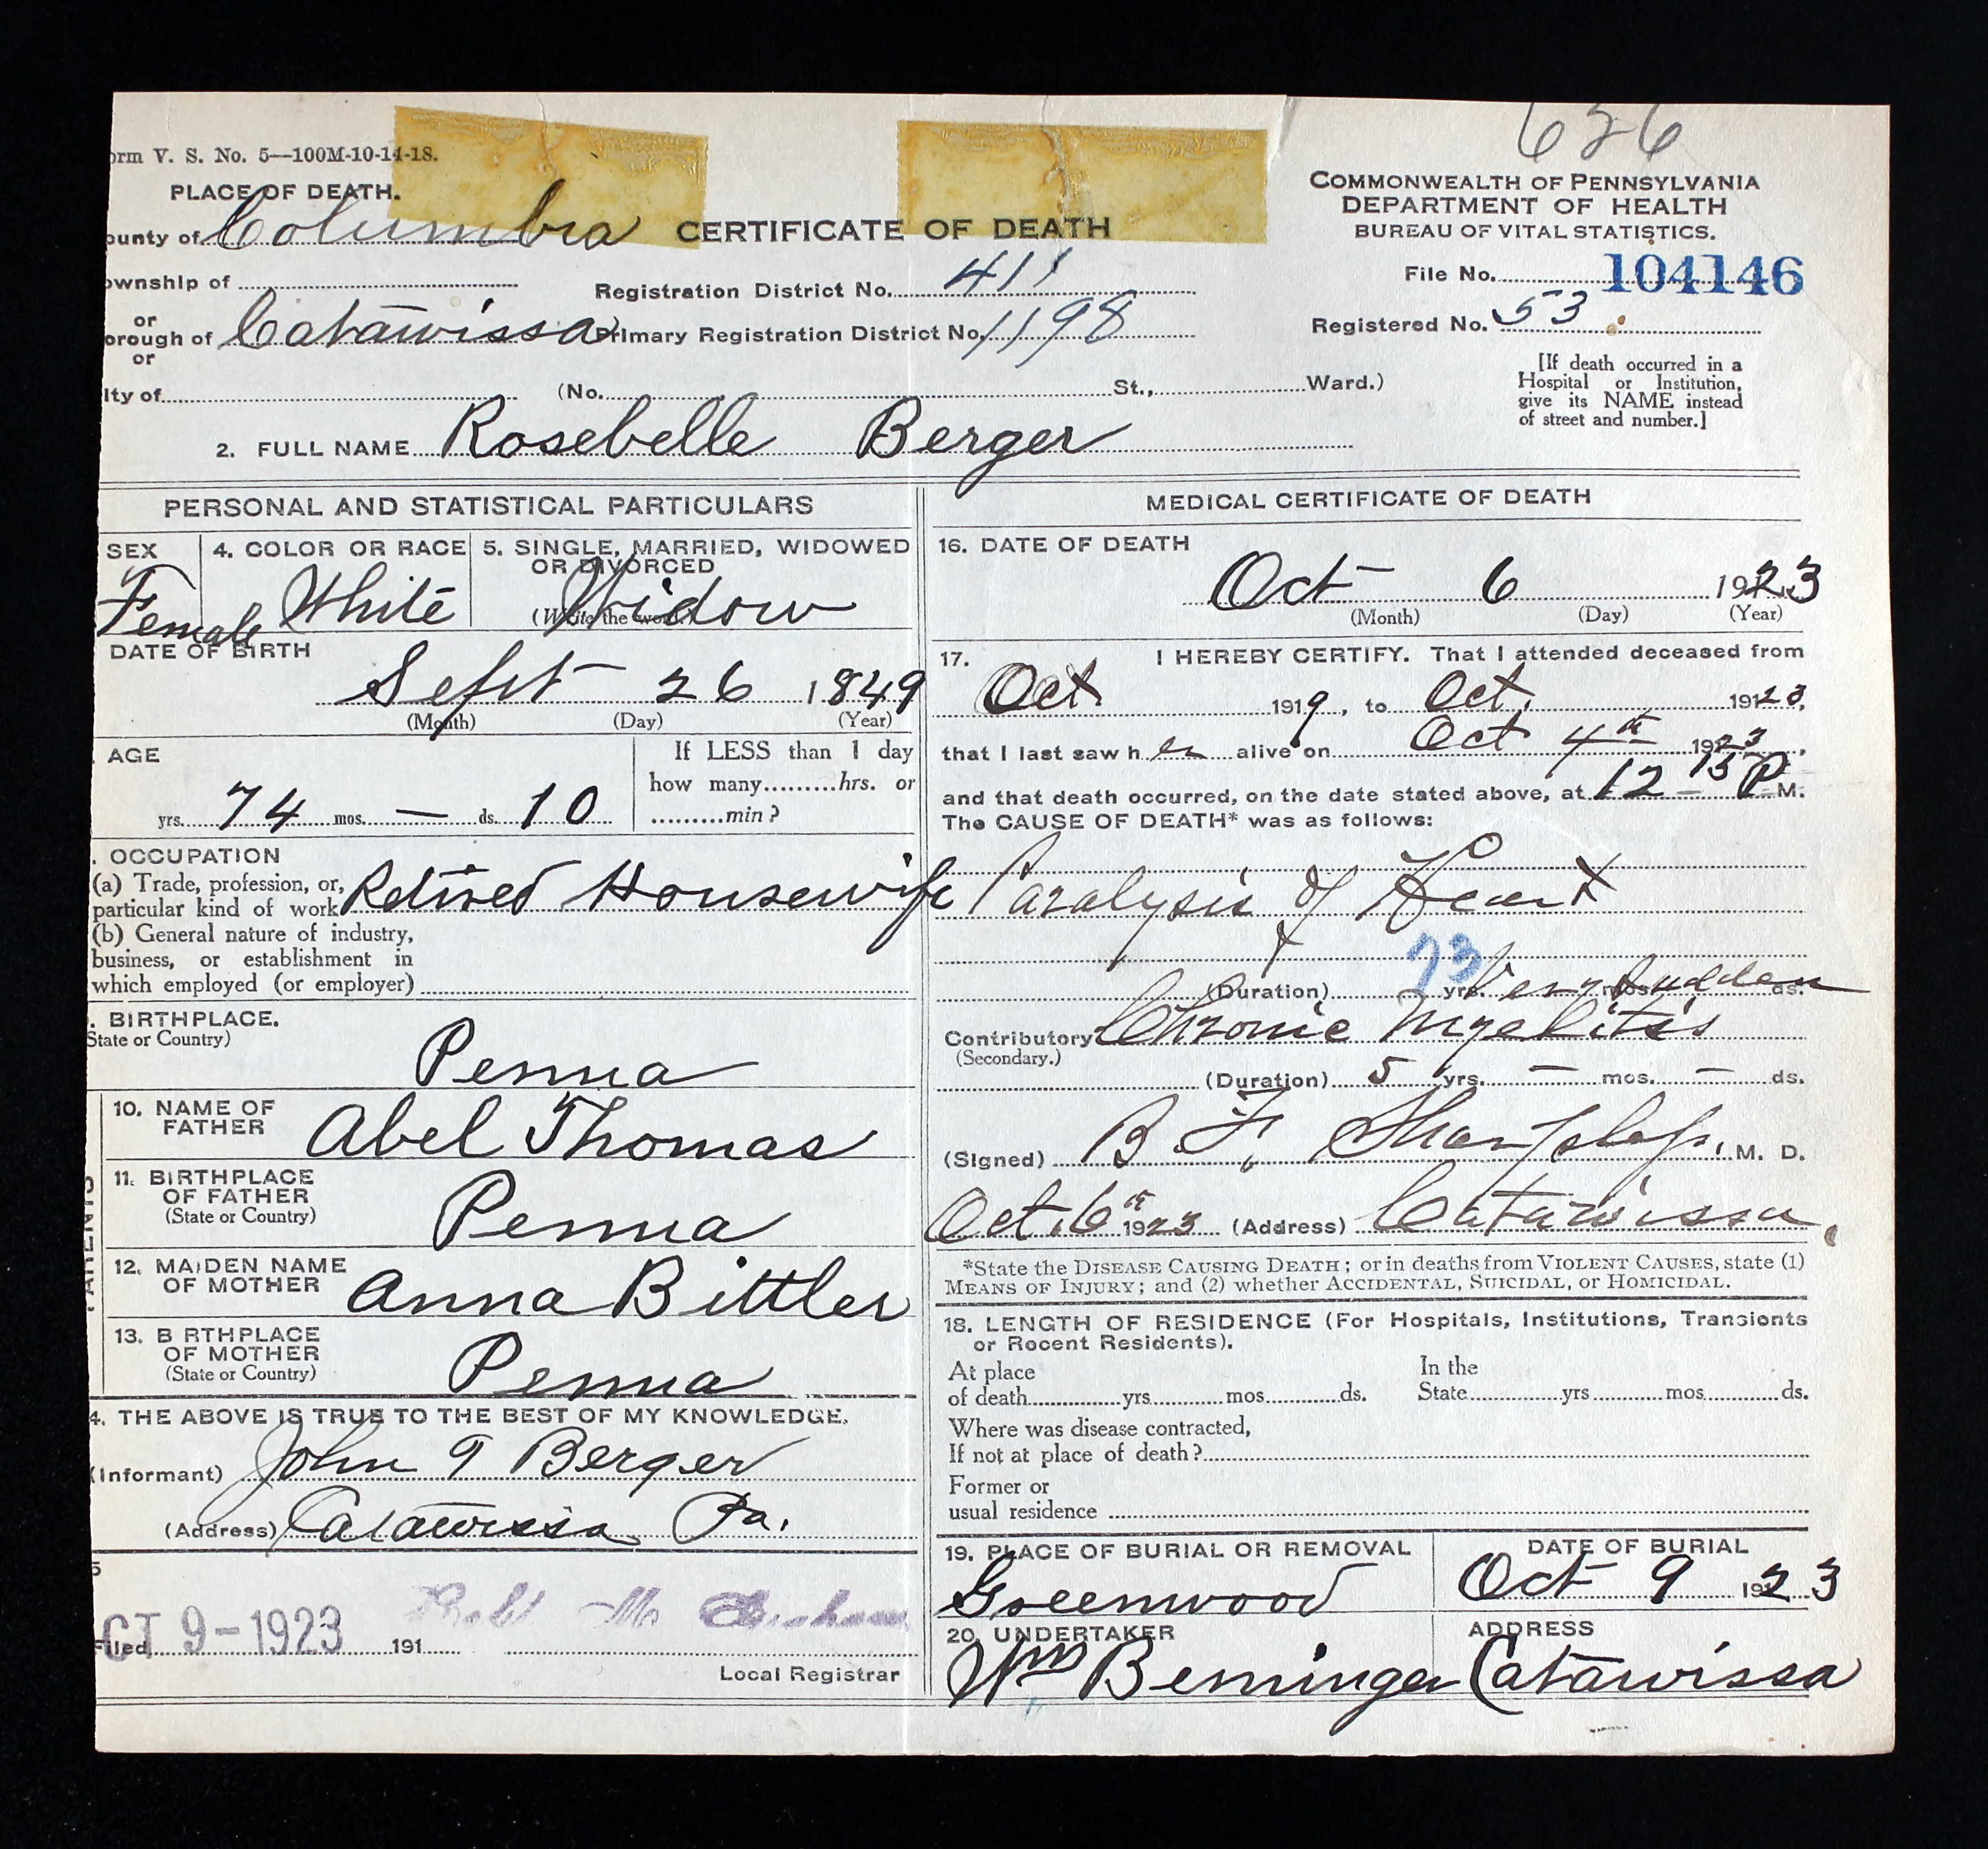 626
orm V. S. No. 5—100M-10-14-18.
PLACE OF DEATH.
ounty of Columbia
CERTIFICATE OF DEATH
COMMONWEALTH OF PENNSYLVANIA
DEPARTMENT OF HEALTH
BUREAU OF VITAL STATISTICS.
ownship of
Registration District No. 411
File No. 104146
or
orough of Catawissa Primary Registration District No. 1198
Registered No. 53
or
ity of (No. St., Ward.)
[If death occurred in a
Hospital or Institution,
give its NAME instead
of street and number.]
2. FULL NAME Rosebelle Berger
PERSONAL AND STATISTICAL PARTICULARS
SEX
Female
4. COLOR OR RACE
White
5. SINGLE, MARRIED, WIDOWED
OR DIVORCED
(Write the word)
Widow
DATE OF BIRTH
Sept 26 1849
(Month) (Day) (Year)
AGE
yrs. 74 mos. — ds. 10
If LESS than 1 day
how many hrs. or
min?
. OCCUPATION
(a) Trade, profession, or,
particular kind of work Retired Housewife
(b) General nature of industry,
business, or establishment in
which employed (or employer)
. BIRTHPLACE.
State or Country)
Penna
PARENTS
10. NAME OF
FATHER
Abel Thomas
11. BIRTHPLACE
OF FATHER
(State or Country)
Penna
12. MAIDEN NAME
OF MOTHER
Anna Bittler
13. B RTHPLACE
OF MOTHER
(State or Country)
Penna
4. THE ABOVE IS TRUE TO THE BEST OF MY KNOWLEDGE.
(Informant) John T Berger
(Address) Catawissa Pa.
5
Filed CT 9-1923 191
Local Registrar
MEDICAL CERTIFICATE OF DEATH
16. DATE OF DEATH
Oct 6 1923
(Month) (Day) (Year)
17. I HEREBY CERTIFY. That I attended deceased from
Oct 1919, to Oct. 1923,
that I last saw her alive on Oct 4th 1923,
and that death occurred, on the date stated above, at 12-15 P M.
The CAUSE OF DEATH* was as follows:
Paralysis of Heart
73
(Duration) yrs. mos. ds. Very Sudden
Contributory Chronic Myelitis
(Secondary.)
(Duration) 5 yrs. — mos. — ds.
(Signed) B F. Sharpless. M. D.
Oct. 6th 1923 (Address) Catawissa.
*State the DISEASE CAUSING DEATH; or in deaths from VIOLENT CAUSES, state (1)
MEANS OF INJURY; and (2) whether ACCIDENTAL, SUICIDAL, or HOMICIDAL.
18. LENGTH OF RESIDENCE (For Hospitals, Institutions, Transients
or Recent Residents).
At place In the
of death yrs mos ds. State yrs mos ds.
Where was disease contracted,
If not at place of death?
Former or
usual residence
19. PLACE OF BURIAL OR REMOVAL
Greenwood
DATE OF BURIAL
Oct 9 1923
20. UNDERTAKER
Wm Berninger
ADDRESS
Catawissa